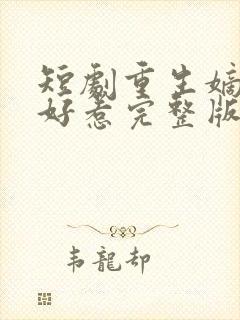 短劇重生嫡
好惹完整版
韦龍却